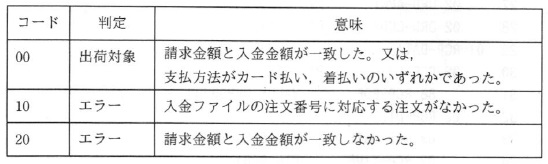 コード 判定 意味
00 出荷対象 請求金額と入金金額が一致した。又は，
支払方法がカード払い，着払いのいずれかであった。
10 エラー 入金ファイルの注文番号に対応する注文がなかった。
20 エラー 請求金額と入金金額が一致しなかった。